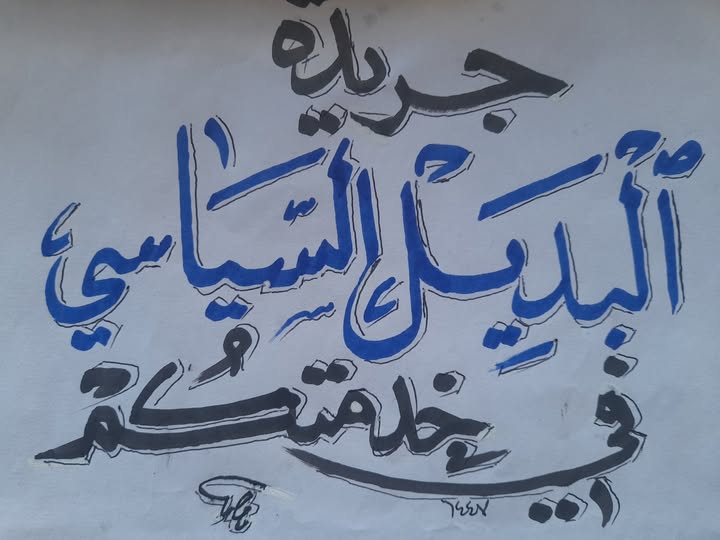 جريدة
ٱلْبَدِيَلْ السِّيَاسي
في خدمتكُمْ